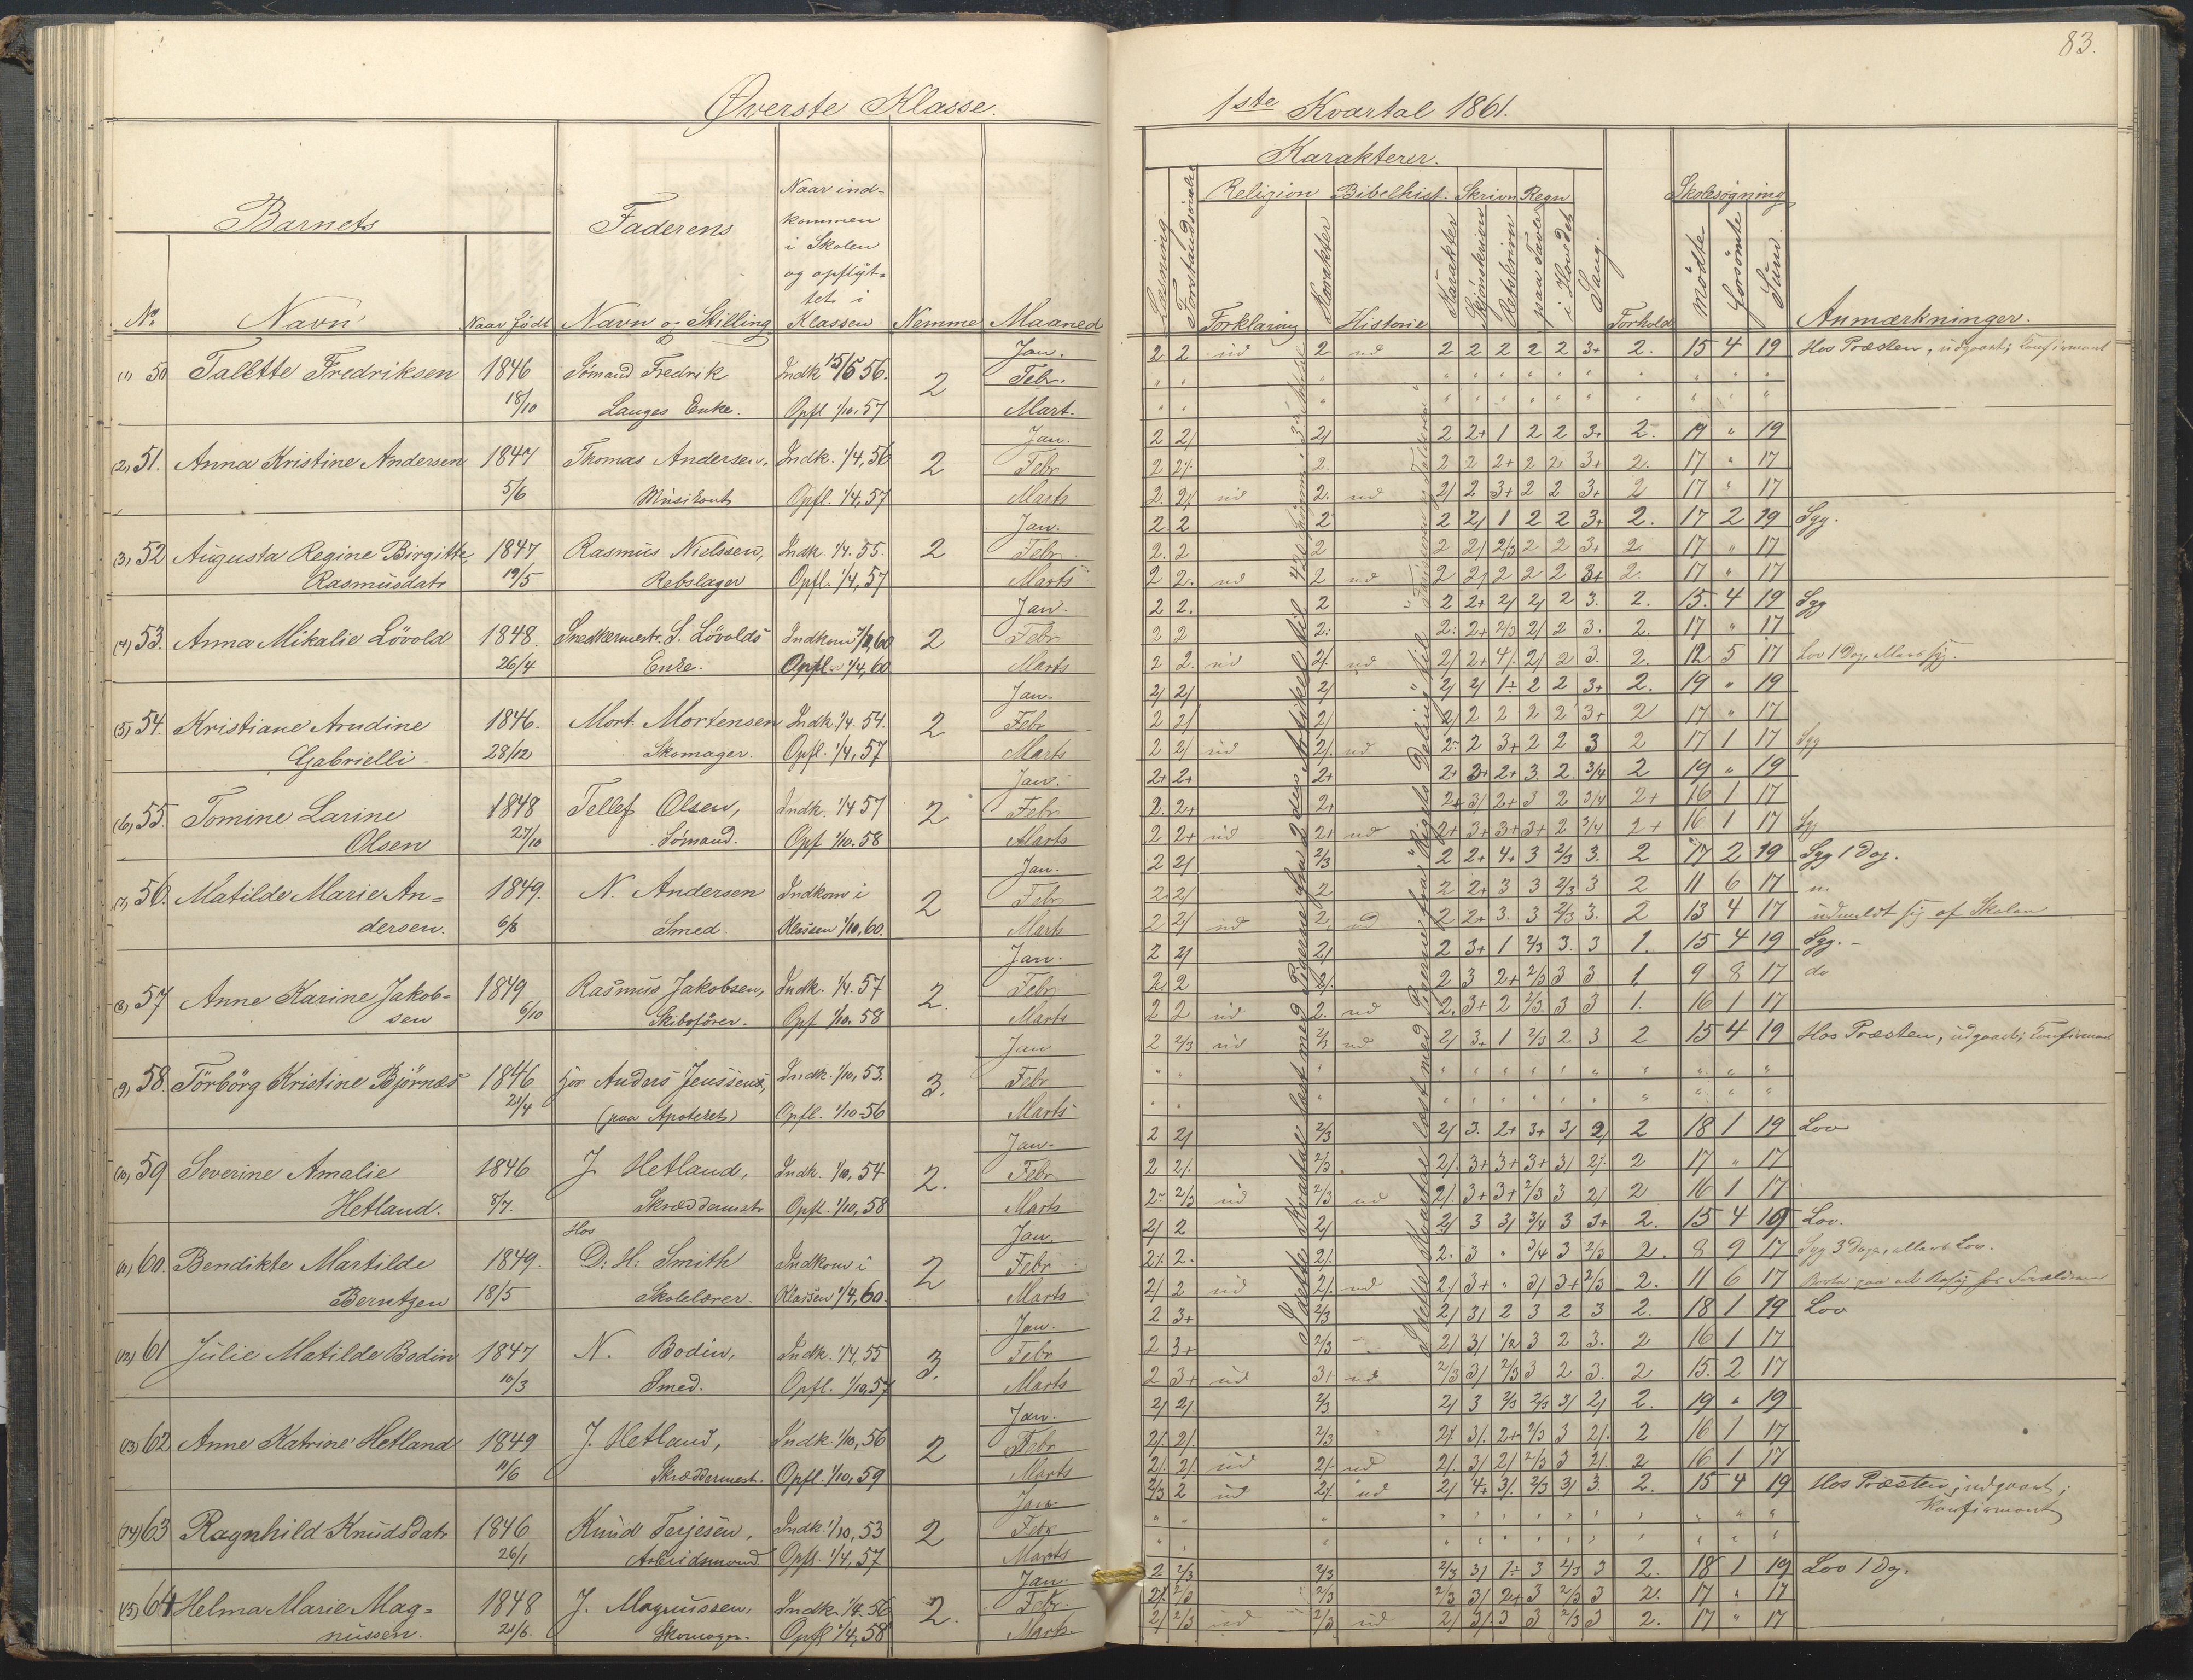 83.
Øverste Klasse.
1ste Kvartal 1861.
Barnets
Faderens
Naar ind=
kommen
i Skolen
og opflyt=
tet i
Klassen
No Navn Naar født Navn og Stilling Nemme Maaned
Karakterer.
Religion Bibelhist. Skrivn Regn
Skolesøgning
Læsning. Forklaring Karakter Historie Karakter Skjönskrivn Retskrivn paa Tavle i Hovedet Sang. Forhold Mødte Forsömte Sum. Anmærkninger.
(1) 50 Talette Fredriksen 1846 Sømand Fredrik Indk 15/5 56. 2 Jan. 2 2 ud 2 ud 2 2 2 2 2 3+ 2. 15 4 19 Hos Præsten, udgaaet; Konfirmant
Febr.
18/10 Langes Enke. Opfl 1/10. 57 Mart.
(2) 51. Anna Kristine Andersen 1847 Thomas Andersen, Indk. 1/4, 56 2 Jan. 2 2/ 2/ 2 2+ 1 2 2 3+ 2. 19 " 19
Febr 2 2/. 2. 2 2 2+ 2 2 3+ 2. 17 " 17
5/6 Musikant Opfl. 1/4, 57 Marts 2. 2/ ud 2. ud 2/ 2 3+ 2 2 3+ 2 17 " 17
(3) 52 Augusta Regine Birgitte 1847 Rasmus Nielssen, Indk. 1/4. 55. 2 Jan. 2. 2 2 2 2/ 1 2 2 3+ 2. 17 2 19 Syg.
Febr 2. 2 2 2 2/ 2/3 2 2 3+ 2 17 " 17
Rasmusdatr 19/5 Rebslager Opfl. 1/4, 57 Marts 2 2. ud 2 ud 2 2/ 2 2 2 3+ 2. 17 " 17
(4) 53. Anna Mikalie Lövold 1848. Snedkermestr. S. Lövolds Indkom 1/2, 60 2 Jan. 2 2. 2 2 2+ 2/ 2/ 2 3. 2. 15. 4 19 Syg
Febr 2 2 2. 2. 2+ 2/3 2/ 2 3. 2. 17 " 17
26/4 Enke. Opfl. 1/4, 60 Marts 2 2. ud 2/. ud 2/ 2+ 4/. 2/ 2 3. 2. 12 5 17 Lov 1 Dag, ellers syg.
(5) 54. Kristiane Andine 1846. Mort. Mortensen Indk. 1/4. 54. 2 Jan. 2/ 2/ 2/ 2/ 2/ 1÷ 2 2 3+ 2. 19 " 19
Febr 2 2/ 2/ 2/ 2 2 2 2 3+ 2 17 " 17
Gabrielli 28/12 Skomager. Opfl. 1/4, 57 Marts 2 2/ ud 2/. ud 2÷ 2 3+ 2 2 3 2 17 1 17 Syg
(6) 55. Tomine Larine 1848 Tellef Olsen, Indk. 1/4 57 2 Jan. 2+ 2+ 2+ 2+ 3+ 2+ 3 2. 3/4 2 19 " 19
Febr 2. 2+ 2+ 2+ 3/ 2+ 3 2 3/4 2+ 16 1 17
Olsen 27/10 Sømand. Opf 1/10. 58 Marts 2 2+ ud 2+ ud 2+ 3+ 3+ 3+ 2 3/4 2+ 16 1 17 Syg
(7) 56. Matilde Marie An= 1849. N. Andersen Indkom i 2 Jan. 2 2/ 2/3 2 2+ 4+ 3 2/3 3. 2 17 2 19 Syg 1 Dag.
Febr 2. 2/ 2 2 2+ 3 3 2/3 3 2 11 6 17
dersen. 6/8 Smed. Klassen 1/10, 60. Marts 2 2/ ud 2. ud 2 2+ 3. 3 2/3 3. 2 13 4 17 udmeldt sig af Skolen
(8) 57 Anne Karine Jakob= 1849 Rasmus Jakobsen, Indk. 1/4. 57 2. Jan. 2 2/ 2/ 2 3+ 1 2/3 3. 3 1. 15 4 19 Syg. -
Febr 2. 2 2/. 2 3 2+ 2/3 3 3 1 9 8 17 do
sen 6/10 Skibsfører. Opf 1/10. 58 Marts 2 2 ud 2. ud 2. 3+ 2 2/3 3 3 1. 16 1 17
(9) 58. Törbörg Kristine Björnæs 1846 Anders Jenssens, Indk. 1/10, 53. 3. Jan 2 2/3 ud 2/3 ud 2/ 3+ 1 2/3 2 3 2 15 4 19 Hos Præsten, udgaaet; Konfirmant
Febr
21/4 (paa Apoteket) Opfl. 1/10-56 Marts
(10) 59 Severine Amalie 1846 J. Hetland, Indk. 1/10, 54 2. Jan. 2 2/ 2/3 2/ 3. 2+ 3+ 3/ 2/ 2 18 1 19 Lov
Febr 2 2/. 2/3 2/. 3+ 3+ 3+ 3/ 2/. 2 17 " 17
Hetland. 8/7. Skræddermstr Opfl. 1/10, 58 Marts 2÷ 2/3 ud 2/3 ud 2/ 3+ 3+ 2/3 3 2/ 2 16 1 17
(11) 60. Bendikte Martilde 1849. Hos D. H. Smith Indkom i 2 Jan. 2/ 2 2/ 2/ 3 3/ 3/4 3 3+ 2. 15 4 19 Lov.
Febr 2/. 2. 2/. 2. 3 " 3/4 3 2/3 2. 8 9 17 Syg 3 Dage, ellers Lov.
Berntzen 18/5 Skolelærer. Klassen 1/4, 60. Marts 2/ 2 ud 2/. ud 2/ 3+ " 3/ 3+ 2/3 2. 11 6 17
(12) 61 Julie Matilde Bodin 1847 N. Bodin, Indk. 1/4, 55 3. Jan. 2 3+ 2/3 2/ 3/ 2 3 2 3 2. 18 1 19 Lov
Febr 2 3+ 2/3 2/ 3/ 1/2 3 2 3. 2 16 1 17
10/3 Smed. Opfl. 1/10, 57 Marts 2 3+ ud 3+ ud 2/3 3/ 2/3 3 2 3. 2 15. 2 17
(13) 62 Anne Katrine Hetland 1849 J. Hetland, Indk. 1/10, 56 2 Jan. 2/ 2/ 2/3 2/ 3 2/3 2/3 3/ 2/ 2. 19 " 19
Febr 2/. 2/. 2/3 2/. 3/. 2+ 2/3 3 2/. 2 16 1 17
11/6 Skræddermest. Opfl. 1/10, 59 Marts 2/. 2/. ud 2/. ud 2/ 3/ 2/ 2/3 3 2/. 2 16 1 17
(14) 63 Ragnhild Knudsdatr 1846 Knud Terjesen, Indk. 1/10, 53 2 Jan. 2/3 2 ud 2/. ud 2/ 4+ 3/. 2/3 3/ 3. 2. 15 4 19 Hos Præsten, udgaaet;
Febr Konfirmant
26/1 Arbeidsmand Opfl. 1/4, 57 Marts
(15) 64 Helma Marie Mag= 1848 J. Magnussen, Indk. 1/4. 56 2. Jan. 2 2/3 2/3 2/3 3/ 1÷ 3 2/3 3 2. 18 1 19 Lov 1 Dag.
Febr. 2/. 2/3 2/3 2/3 3/ 2+ 3 2/3 3 2. 17 " 17
nussen. 21/6. Skomager. Opfl 1/4, 58 Marts. 2/ 2/3 ud 2/3 ud 2/ 3/. 3 3 2/3 3 2. 17 " 17